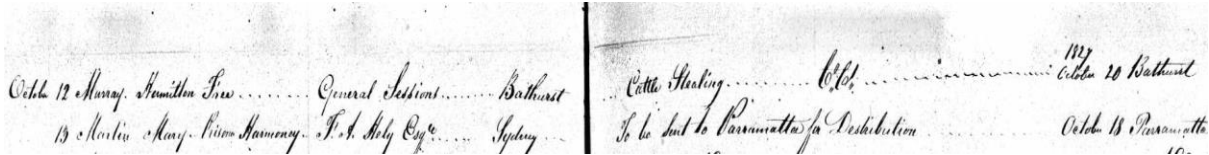 1827
Octobr 12 Murray Hamilton Free ........ General Sessions ....... Bathurst Cattle Stealing ........ October 20 Bathurst
13 Martin Mary Prisoner Harmoney F. A. Hely Esqre ..... Sydney To be sent to Parramatta for Destribution October 18 Parramatta